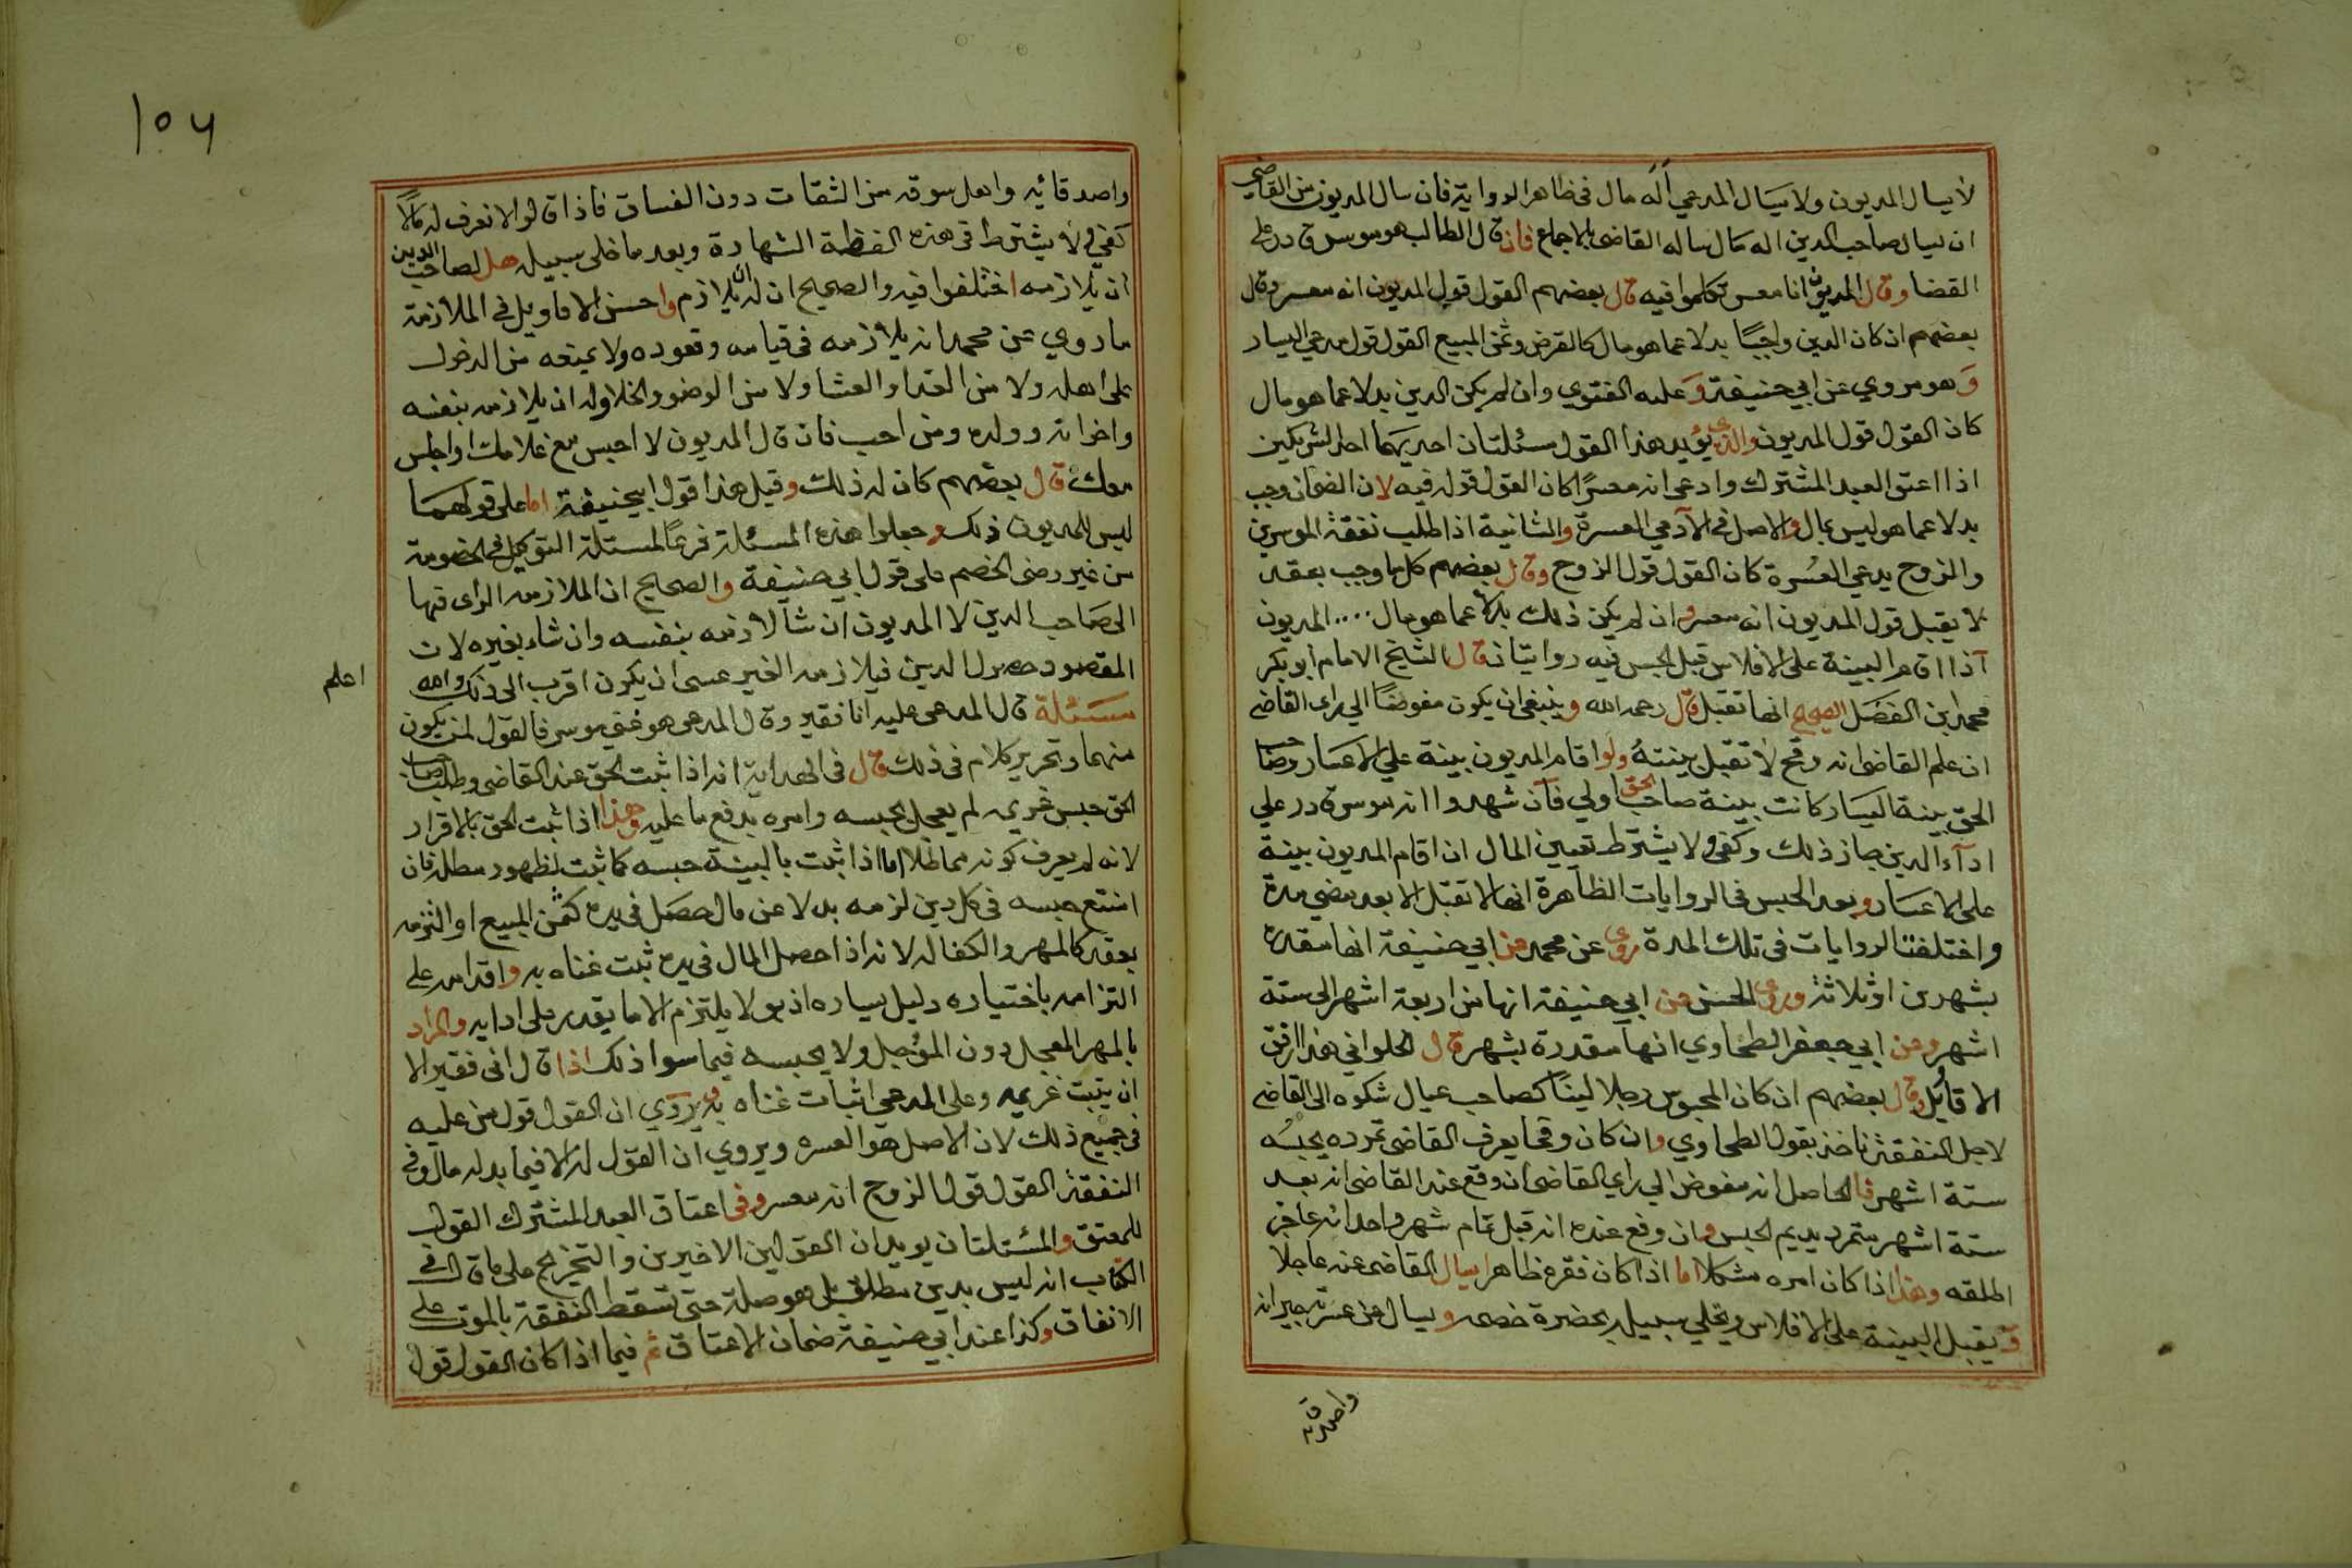 لا يسال المديون ولا يسال المدعي أله مال في ظاهر الرواية فان سال المديون من القاضي
ان يسال صاحب الدين اله مال ساله القاضي بالاجماع فان قال الطالب هو موسر قادر على
القضا وقال المديون انا معسر تكلموا فيه قال بعضهم القول قول المديون انه معسر وقال
بعضهم ان كان الدين واجبًا بدلا عما هو مال كالقرض وثمن المبيع القول قول مدعي اليسار
وهو مروي عن ابي حنيفة وعليه الفتوي وان لم يكن الدين بدلا عما هو مال
كان القول قول المديون والذي يؤيد هذا القول مسئلتان احديهما احد الشريكين
اذا اعتق العبد المشترك وادعى انه معسرًا كان القول قوله فيه لان الضمان وجب
بدلا عما هو ليس بمال والاصل في الآدمي العسرة والثانية اذا طلب نفقة الموسرين
والزوج يدعي العسرة كان القول قول الزوج وقال بعضهم كل ما وجب بعقد
لا يقبل قول المديون انه معسر وان لم يكن ذلك بدلا عما هو مال .... المديون
آذا اقام البينة على الافلاس قبل الحبس فيه روايتان قال الشيخ الامام ابو بكر
محمد ابن الفضل الصحيح انها تقبل قال رحمه الله وينبغي ان يكون مفوضًا الي راى القاضي
ان علم القاضي انه وقح لا تقبل بينته ولو اقام المديون بينة علي الاعسار وصاحب
الحق بينة اليسار كانت بينة صاحب الحق اولي فآن شهدوا انه موسر قادر علي
ادآء الدين جاز ذلك وكفى ولا يشترط تعيين المال ان اقام المديون بينة
على الاعسار وبعد الحبس في الروايات الظاهرة انها لا تقبل الا بعد مضي مدة
واختلفت الروايات في تلك المدة روى عن محمد عن ابي حنيفة انها مقدرة
بشهرين او ثلاثة وروى الحسن عن ابي حنيفة انها من اربعة اشهر الى ستة
اشهر وعن ابي جعفر الطحاوي انها مقدرة بشهر قال الحلواني هذا ارفق
الاقاويل وقال بعضهم ان كان المحبوس رجلا لينًا كصاحب عيال شكوه الى القاضي
لاجل النفقة ناخذ بقول الطحاوي وان كان وقحا يعرف القاضي تمرده يحبسه
ستة اشهر فالحاصل انه مفوض الي راي القاضي ان وقع عند القاضي انه بعد
ستة اشهر متمرد يديم الحبس وان وقع عنده انه قبل تمام شهر واحد انه عاجز
اطلقه وهذا اذا كان امره مشكلا اما اذا كان فقره ظاهرا يسال القاضي عنه عاجلا
ويقبل البينة على الافلاس ويخلي سبيله بحضرة خصمه ويسال عن عسرته جيرانه
واصدقائه
١٥٦
واصدقائه واهل سوقه من الثقات دون الفساق فاذا قالوا لا نعرف له مالاً
كفى ولا يشترط في هذه الفظة الشهادة وبعد ما خلى سبيله هل لصاحب الدين
ان يلازمه اختلفوا فيه والصحيح ان له ان يلازم واحسن الاقاويل في الملازمة
ما روي عن محمد انه يلازمه في قيامه وقعوده ولا يمنعه من الدخول
على اهله ولا من الغدا والعشا ولا من الوضوء والخلا وله ان يلازمه بنفسه
واخوانه وولده ومن احب فان قال المديون لا احبس مع غلامك او اجلس
معك قال بعضهم كان له ذلك وقيل هذا قول ابيحنيفة اما على قولهما
ليس للمديون ذلك وجعلوا هذه المسئلة فرعًا لمسئلة التوكيل في الخصومة
من غير رضى الخصم على قول ابي حنيفة والصحيح ان الملازمه الراى فيها
الى صاحب الدين لا المديون ان شآ لازمه بنفسه وان شاء بغيره لان
المقصود حصول الدين فيلازمه الغير عسى ان يكون اقرب الى ذلك والله
اعلم
مسئلة قال المدعى عليه انا فقير وقال المدعى هو غنى موسر فالقول لمن يكون
منهما وتحرير كلام في ذلك قال في الهداية انه اذا ثبت الحق عند القاضى وطلب صاحب
الحق حبس غريمه لم يعجل بحبسه وامره بدفع ما عليه وهذا اذا ثبت الحق بالاقرار
لانه لم يعرف كونه مماطلا اما اذا ثبت بالبينة حبسه كما ثبت لظهور مطله فان
امتنع حبسه في كل دين لزمه بدلا عن مال حصل في يده كثمن المبيع او التزمه
بعقد كالمهر والكفاله لانه اذا حصل المال في يده ثبت غناه به واقدامه على
التزامه باختياره دليل يساره اذ هو لا يلتزم الا ما يقدر على ادايه والمراد
بالمهر المعجل دون المؤجل ولا يحبسه فيما سوا ذلك اذا قال انى فقير الا
ان يثبت غريمه وعلى المدعي اثبات غناه به ويروي ان القول قول من عليه
في جميع ذلك لان الاصل هو العسره ويروي ان القول له الا فيما بدله مال وفي
النفقة القول قول الزوج انه معسر وفي اعتاق العبد المشترك القول
للمعتق والمسئلتان يويدان القولين الاخيرين والتخريج على ما قال في
الكتاب انه ليس بدين مطلق بل هو صلة حتى تسقط النفقة بالموت على
الاتفاق وكذا عند ابي حنيفة ضمان الاعتاق ثم فيما اذا كان القول قول